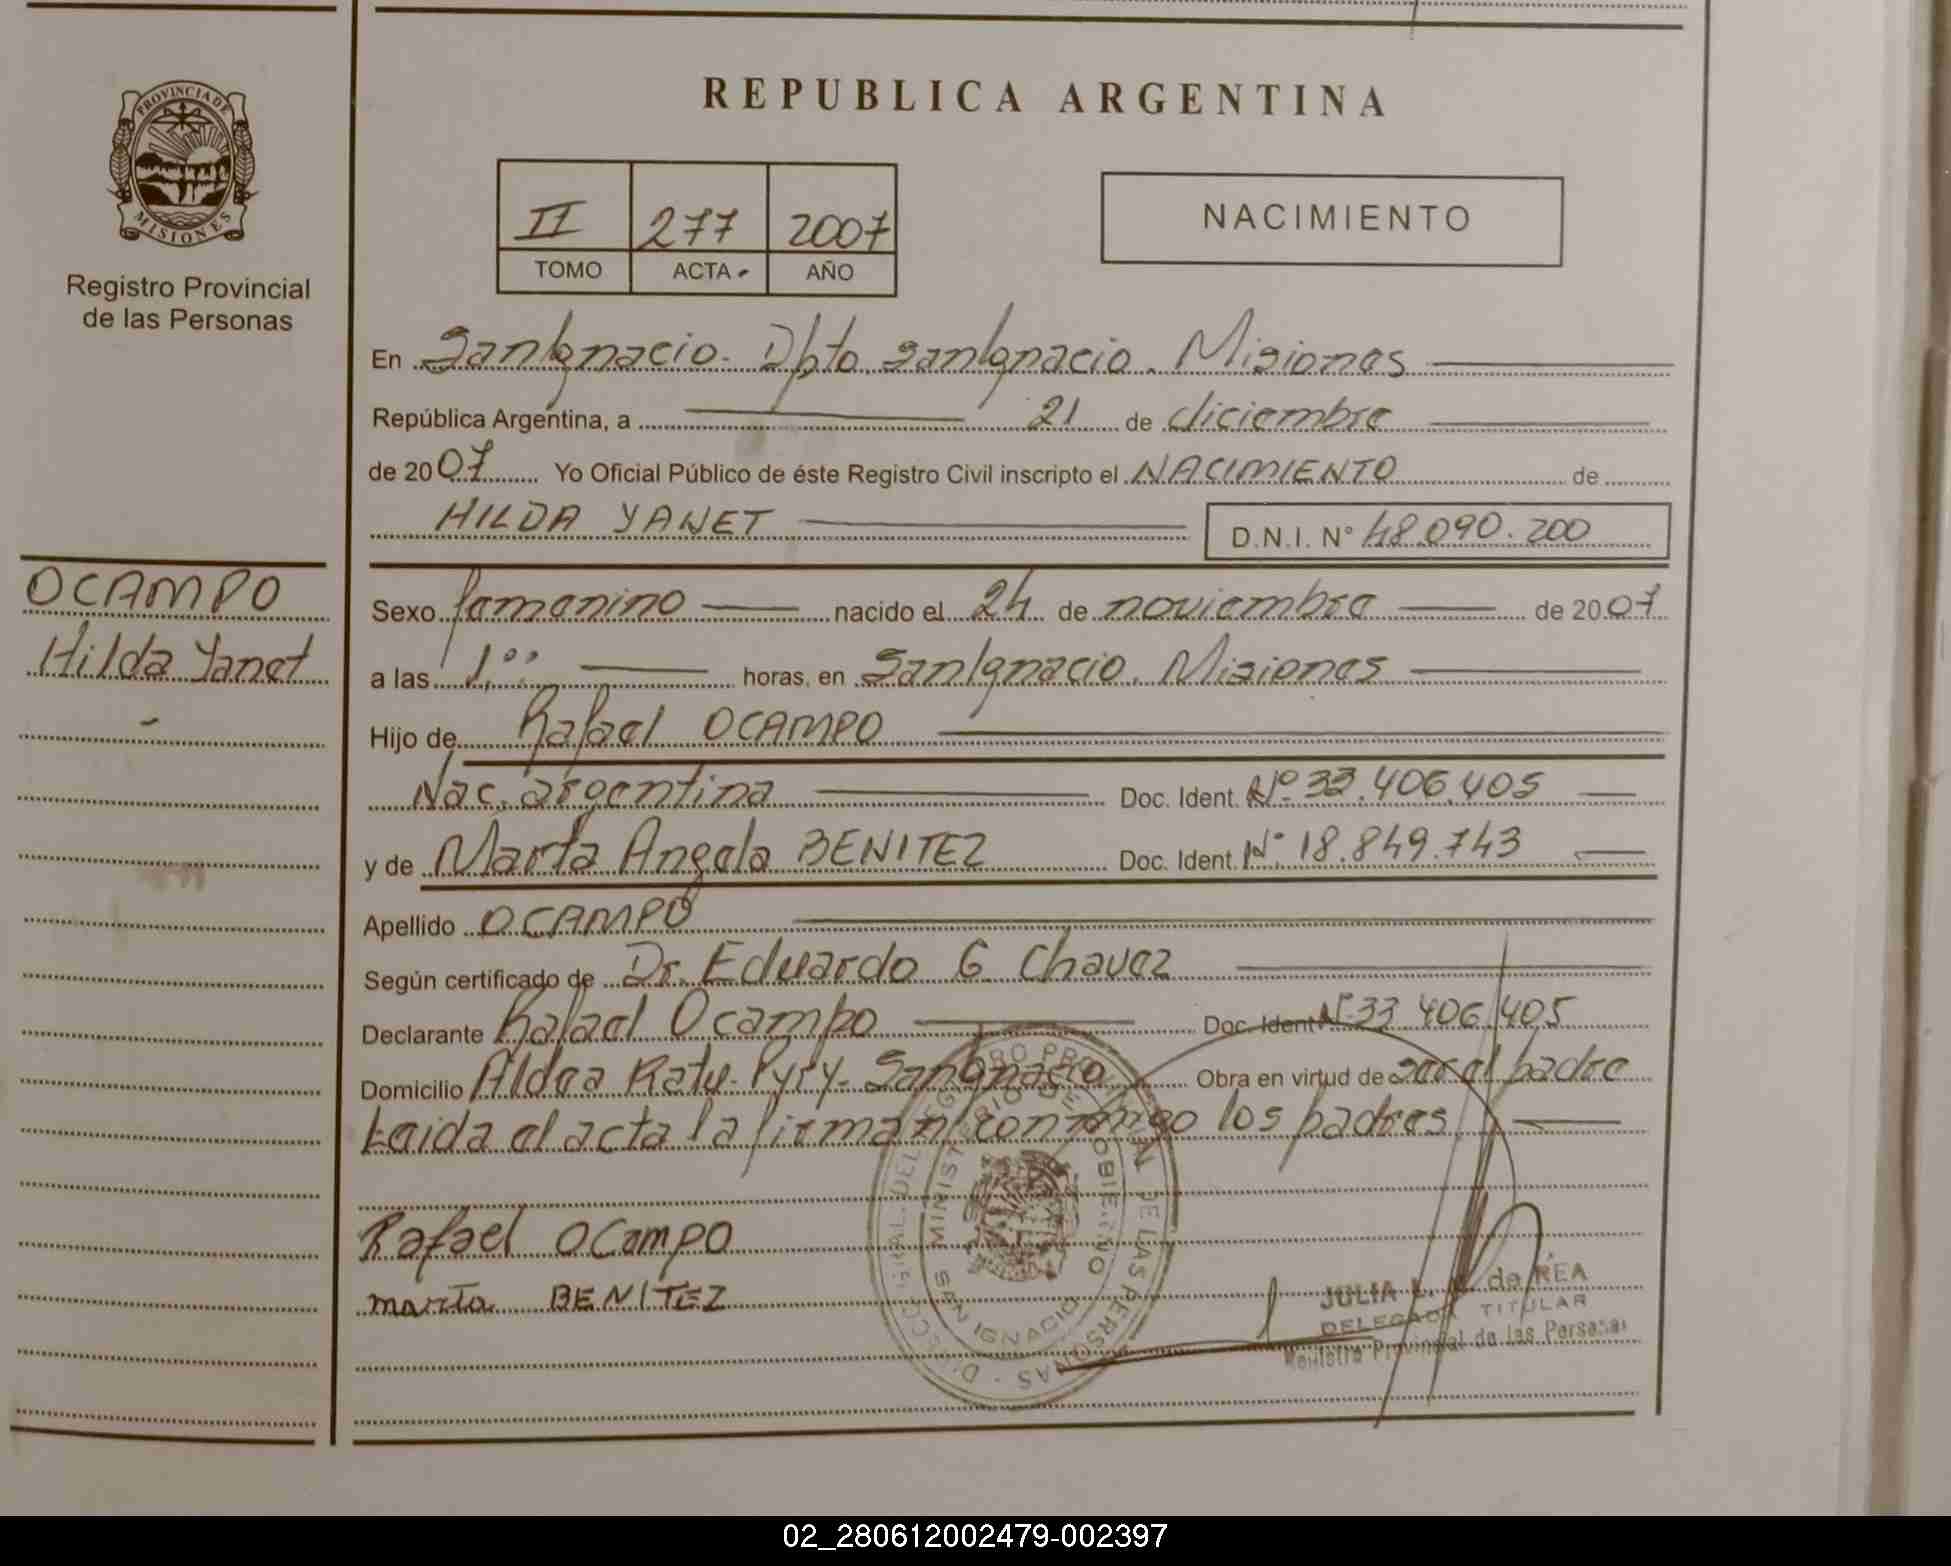 REPUBLICA ARGENTINA
PROVINCIA DE
MISIONES
Registro Provincial
de las Personas
II 277 2007
TOMO ACTA AÑO
NACIMIENTO
En San Ignacio. Dpto. San Ignacio. Misiones
República Argentina, a 21 de diciembre
de 2007 Yo Oficial Público de éste Registro Civil inscripto el NACIMIENTO de
HILDA YANET D.N.I. N° 48.090.200
OCAMPO
Hilda Yanet
Sexo femenino nacido el 24 de noviembre de 2007
a las 1,°° horas, en San Ignacio. Misiones
Hijo de Rafael OCAMPO
Nac. argentina Doc. Ident. Nº 33.406.405
y de Marta Angela BENITEZ Doc. Ident. N° 18.849.743
Apellido OCAMPO
Según certificado de Dr. Eduardo G Chavez
Declarante Rafael Ocampo Doc. Ident N° 33 406 405
Domicilio Aldea Katu-Pyry- San Ignacio Obra en virtud de ser el padre
Leida el acta la firman conmigo los padres
Rafael OCampo
marta BENITEZ
MINISTERIO DE GOBIERNO
SAN IGNACIO
JULIA L. de REA
DELEGADA TITULAR
Registro Provincial de las Personas
02_280612002479-002397